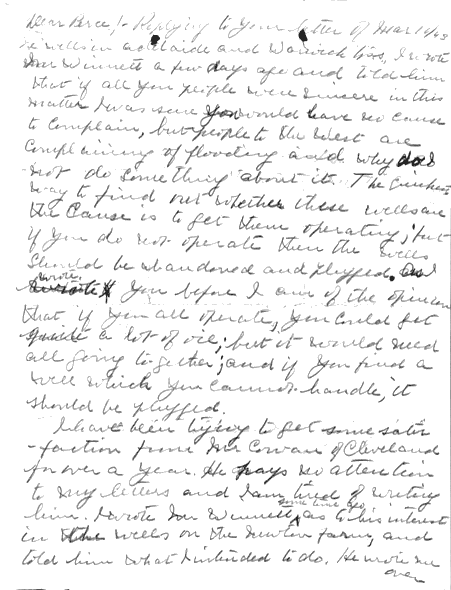 Dear Perce;- Replying to your letter of Mar 14/43
re wells in Adelaide and Warwick Twps, I wrote
Mr Winnett a few days ago and told him
that if all you people were sincere in this
matter I was sure you would have no cause
to complain, but people to the West are
complaining of flooding and why do I
not do something about it. The quickest
way to find out whether these wells are
the cause is to get them operating; but
if you do not operate then the wells
should be abandoned and plugged. As I
wrote you before I am of the opinion
that if you all operate, you could get
quite a lot of oil; but it would need
all going together; and if you find a
well which you cannot handle, it
should be plugged.
I have been trying to get some satis
-faction from Mr Cowan of Cleveland
for over a year. He pays no attention
to my letters and I am tired of writing
him. I wrote Mr Winnett, some time ago as to his interest
in the wells on the Newton farm, and
told him what I intended to do. He wrote me
over